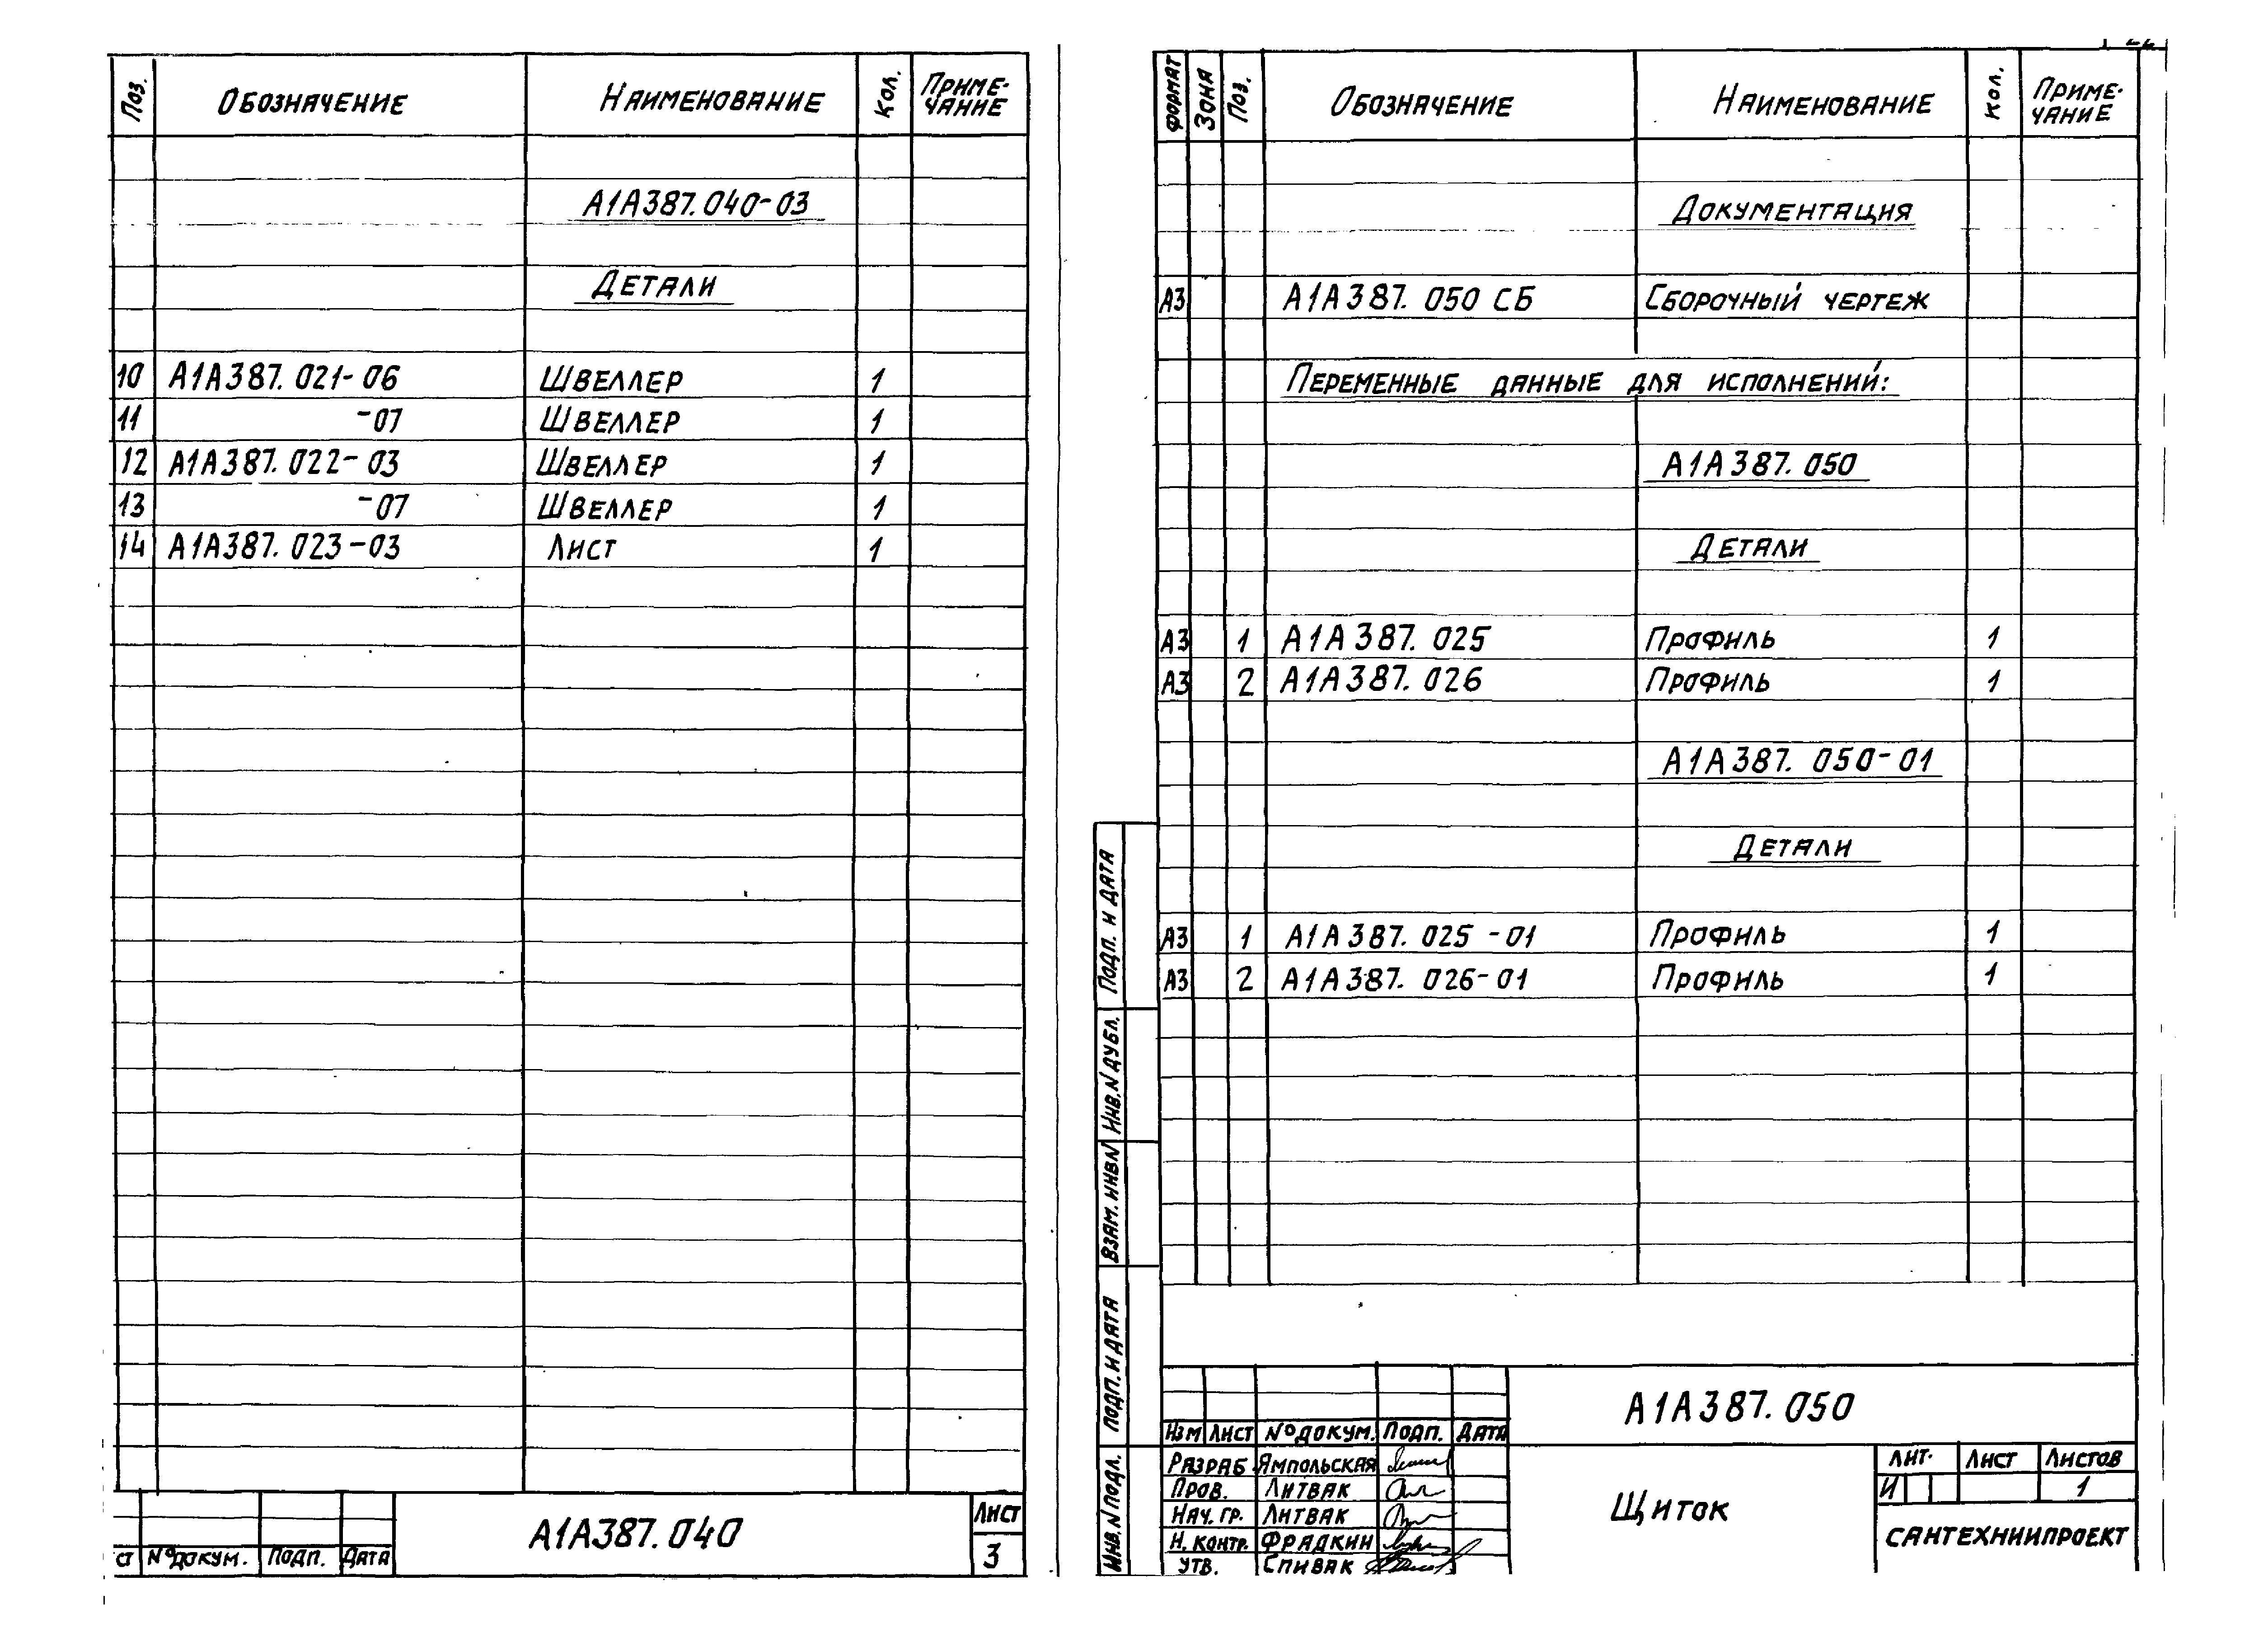 Поз. Обозначение Наименование Кол. Приме-чание
А1А387.040-03
Детали
10 А1А387.021-06 Швеллер 1
11 -07 Швеллер 1
12 А1А387.022-03 Швеллер 1
13 -07 Швеллер 1
14 А1А387.023-03 Лист 1
ст №докум. Подп. Дата
А1А387.040
Лист
3
Формат Зона Поз. Обозначение Наименование Кол. Приме-чание
Документация
А3 А1А387.050 СБ Сборочный чертеж
Переменные данные для исполнений:
А1А387.050
Детали
А3 1 А1А387.025 Профиль 1
А3 2 А1А387.026 Профиль 1
А1А387.050-01
Детали
А3 1 А1А387.025-01 Профиль 1
А3 2 А1А387.026-01 Профиль 1
Подп. и дата
Инв.N дубл.
Взам. инв N
Подп. и дата
Инв.N подл.
Изм Лист №докум. Подп. Дата
Разраб Ямпольская
Пров. Литвак
Нач. гр. Литвак
Н. контр. Фрадкин
Утв. Спивак
А1А387.050
Щиток
Лит. Лист Листов
И 1
Сантехниипроект